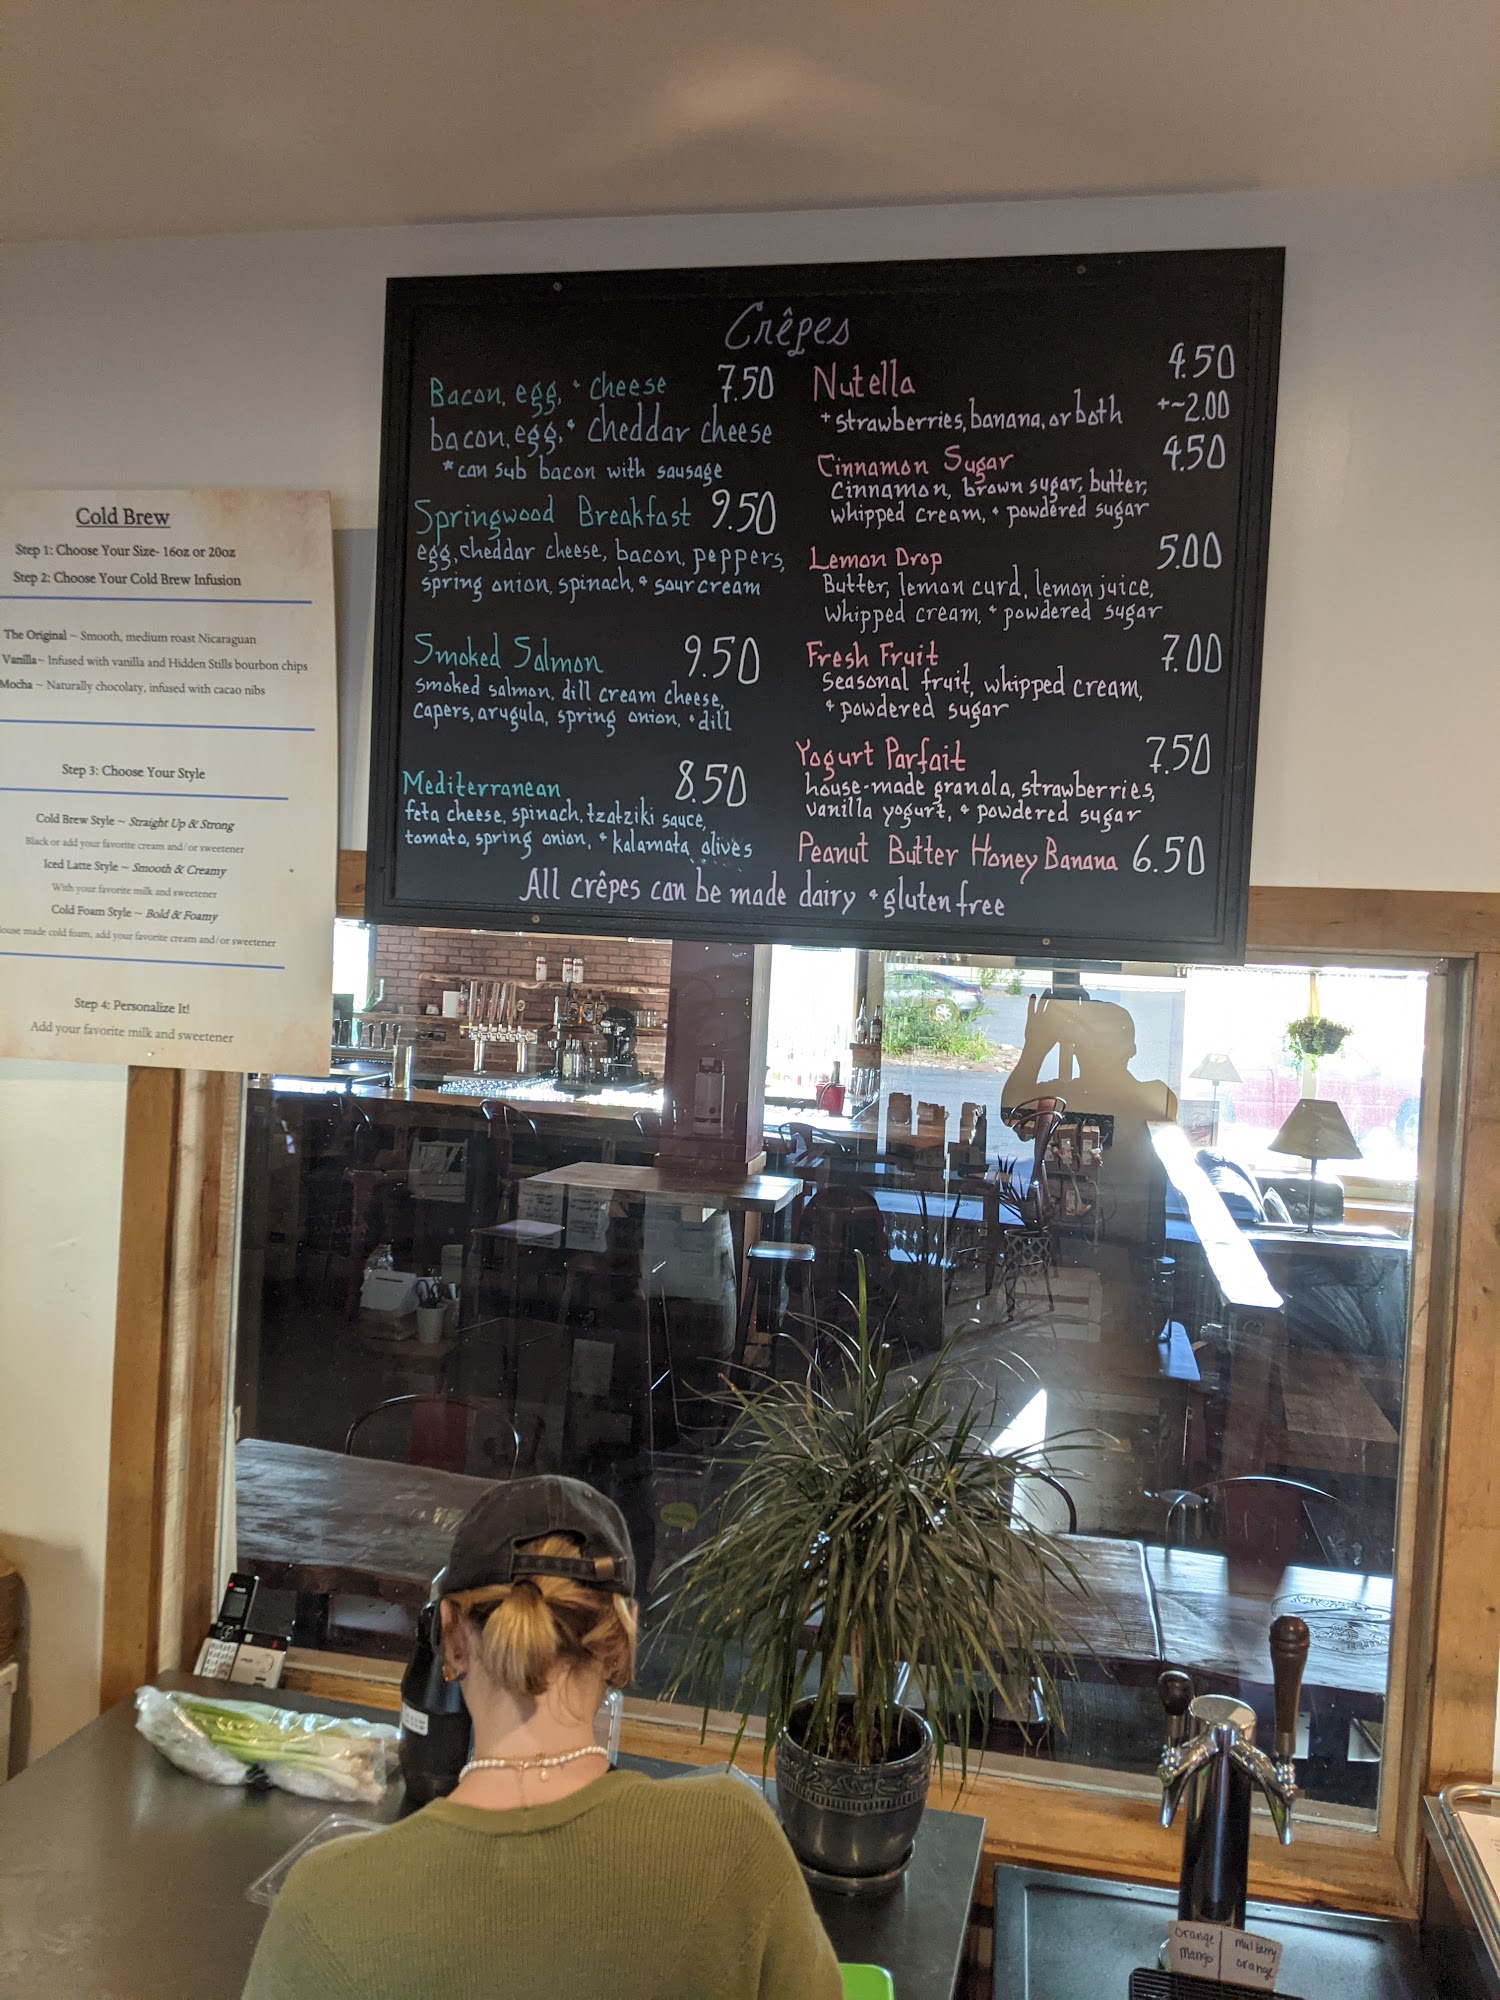 Crêpes
Bacon, egg, + cheese 7.50
bacon, egg, + cheddar cheese
*can sub bacon with sausage
Springwood Breakfast 9.50
egg, cheddar cheese, bacon, peppers,
spring onion, spinach, + sour cream
Smoked Salmon 9.50
smoked salmon, dill cream cheese,
capers, arugula, spring onion, + dill
Mediterranean 8.50
feta cheese, spinach, tzatziki sauce,
tomato, spring onion, + kalamata olives
Nutella 4.50
+ strawberries, banana, or both +~2.00
Cinnamon Sugar 4.50
Cinnamon, brown sugar, butter,
whipped cream, + powdered sugar
Lemon Drop 5.00
Butter, lemon curd, lemon juice,
whipped cream, + powdered sugar
Fresh Fruit 7.00
seasonal fruit, whipped cream,
+ powdered sugar
Yogurt Parfait 7.50
house-made granola, strawberries,
vanilla yogurt, + powdered sugar
Peanut Butter Honey Banana 6.50
All crêpes can be made dairy + gluten free
Cold Brew
Step 1: Choose Your Size- 16oz or 20oz
Step 2: Choose Your Cold Brew Infusion
The Original ~ Smooth, medium roast Nicaraguan
Vanilla~ Infused with vanilla and Hidden Stills bourbon chips
Mocha ~ Naturally chocolaty, infused with cacao nibs
Step 3: Choose Your Style
Cold Brew Style ~ Straight Up & Strong
Black or add your favorite cream and/or sweetener
Iced Latte Style ~ Smooth & Creamy
With your favorite milk and sweetener
Cold Foam Style ~ Bold & Foamy
ouse made cold foam, add your favorite cream and/or sweetener
Step 4: Personalize It!
Add your favorite milk and sweetener
orange
mango
mulberry
orange